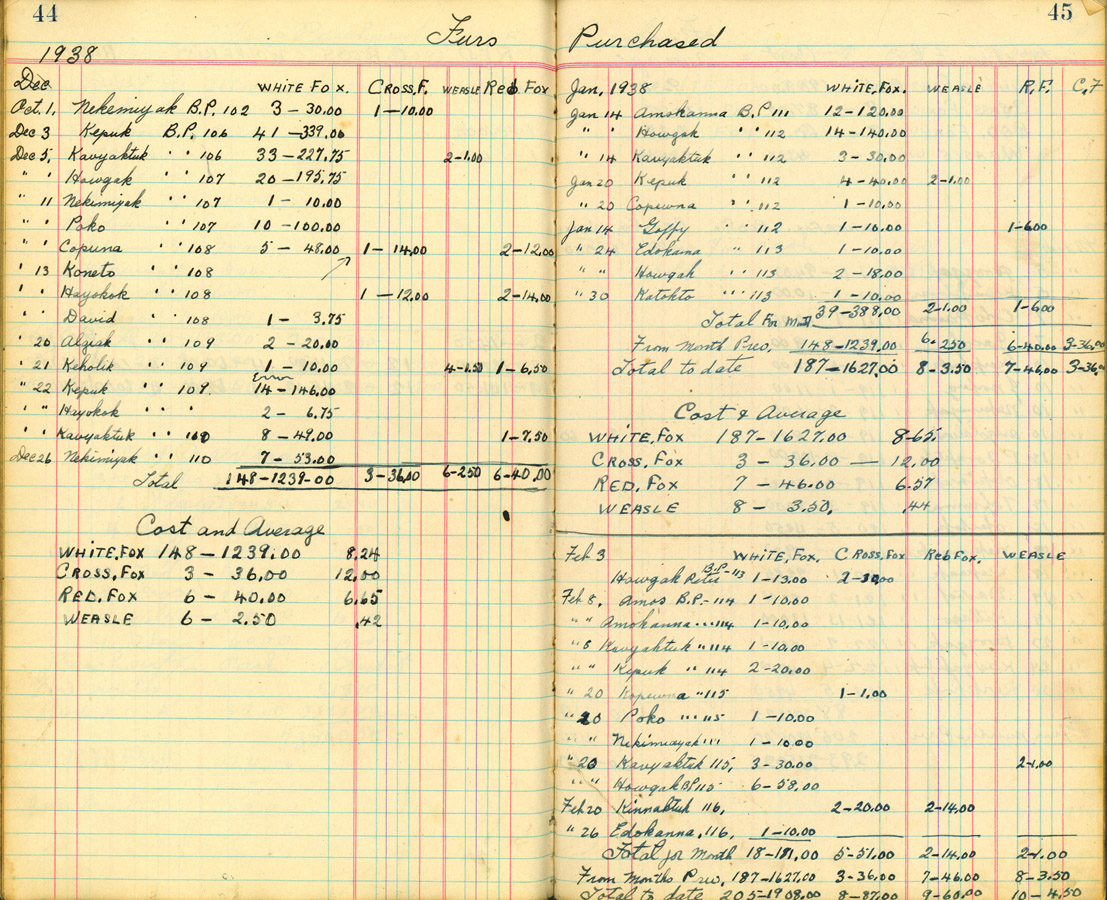 44
Furs
1938
Dec WHITE FOX. CROSS,F. WEASLE Red FOX
Oct. 1, Nekemiyak B.P. 102 3 - 30.00 1-10.00
Dec 3 Kepuk B.P. 106 41 -339.00
Dec 5, Kavyaktuk " 106 33-227.75 2-1.00
" " Howgak " 107 20-195.75
" 11 Nekimiyak " 107 1 - 10.00
" " Poko " 107 10-100.00
" " Copuna " 108 5 - 48.00 1-14.00 2-12.00
" 13 Koneto " 108
" " Hayokok " 108 1-12.00 2-14.00
" " David " 108 1 - 3.75
" 20 Algiak " 109 2 - 20.00
" 21 Keholik " 109 1 - 10.00 4-1.50 1-6.50
" 22 Kepuk " 109. 14-146.00
" " Hayokok " " 2 - 6.75
" " Kavyaktuk " 8 - 49.00 1-7.50
Dec 26 Nekimiyak " 110 7 - 53.00
Total 148-1239-00 3-36,00 6-250 6-40.00
Cost and Average
WHITE,FOX 148-1239.00 8.24
CROSS,FOX 3 - 36.00 12.00
RED. FOX 6 - 40.00 6.65
WEASLE 6 - 2.50 .42
45
Purchased
Jan, 1938 WHITE,FOX. WEASLE R.F. C,F
Jan 14 Amokanna B.P 111 12-120.00
" " Howgak " 112 14-140.00
" 14 Kavyaktuk " 112 3-30.00
Jan 20 Kepuk " 112 4-40.00 2-1.00
" 20 Copewna " 112 1-10.00
Jan 14 Goffy " 112 1-10.00 1-6.00
" 24 Edokana " 113 1-10.00
" " Howgak " 113 2-18.00
" 30 Katohto " 113 1-10.00
Total For Mnth 39-388.00 2-1.00 1-6.00
From Month Prev. 148-1239.00 6-250 6-40.00 3-36.00
Total to date 187-1627.00 8-3.50 7-46.00 3-36.00
Cost & Average
WHITE,FOX 187-1627.00 8.65.
CROSS. FOX 3 - 36.00 — 12.00
RED. FOX 7 - 46.00 6.57
WEASLE 8 - 3.50. .44
Feb 3 WHITE,FOX. CROSS,FOX Red FOX. WEASLE
Howgak Peter B.P-113 1-13.00
Feb 8, Amos B.P.-114 1-10.00
" " Amokanna " 114 1-10.00
" 8 Kavyaktuk " 114 1-10.00
" " Kepuk " 114 2-20.00
" 20 Kopewna " 115 1-1.00
" 20 Poko " 115 1-10.00
" " Nekimiayak " 1-10.00
" 20 Kavyaktuk 115, 3-30.00 2-1.00
" " Howgak BP 115 6-58.00
Feb 20 Kinnaktuk 116, 2-20.00 2-14.00
" 26 Edokanna, 116, 1-10.00
Total for Month 18-181.00 5-51.00 2-14.00 2-1.00
From Months Prev, 187-1627.00 3-36.00 7-46.00 8-3.50
Total to date 205-1908.00 8-87.00 9-60.00 10-4.50